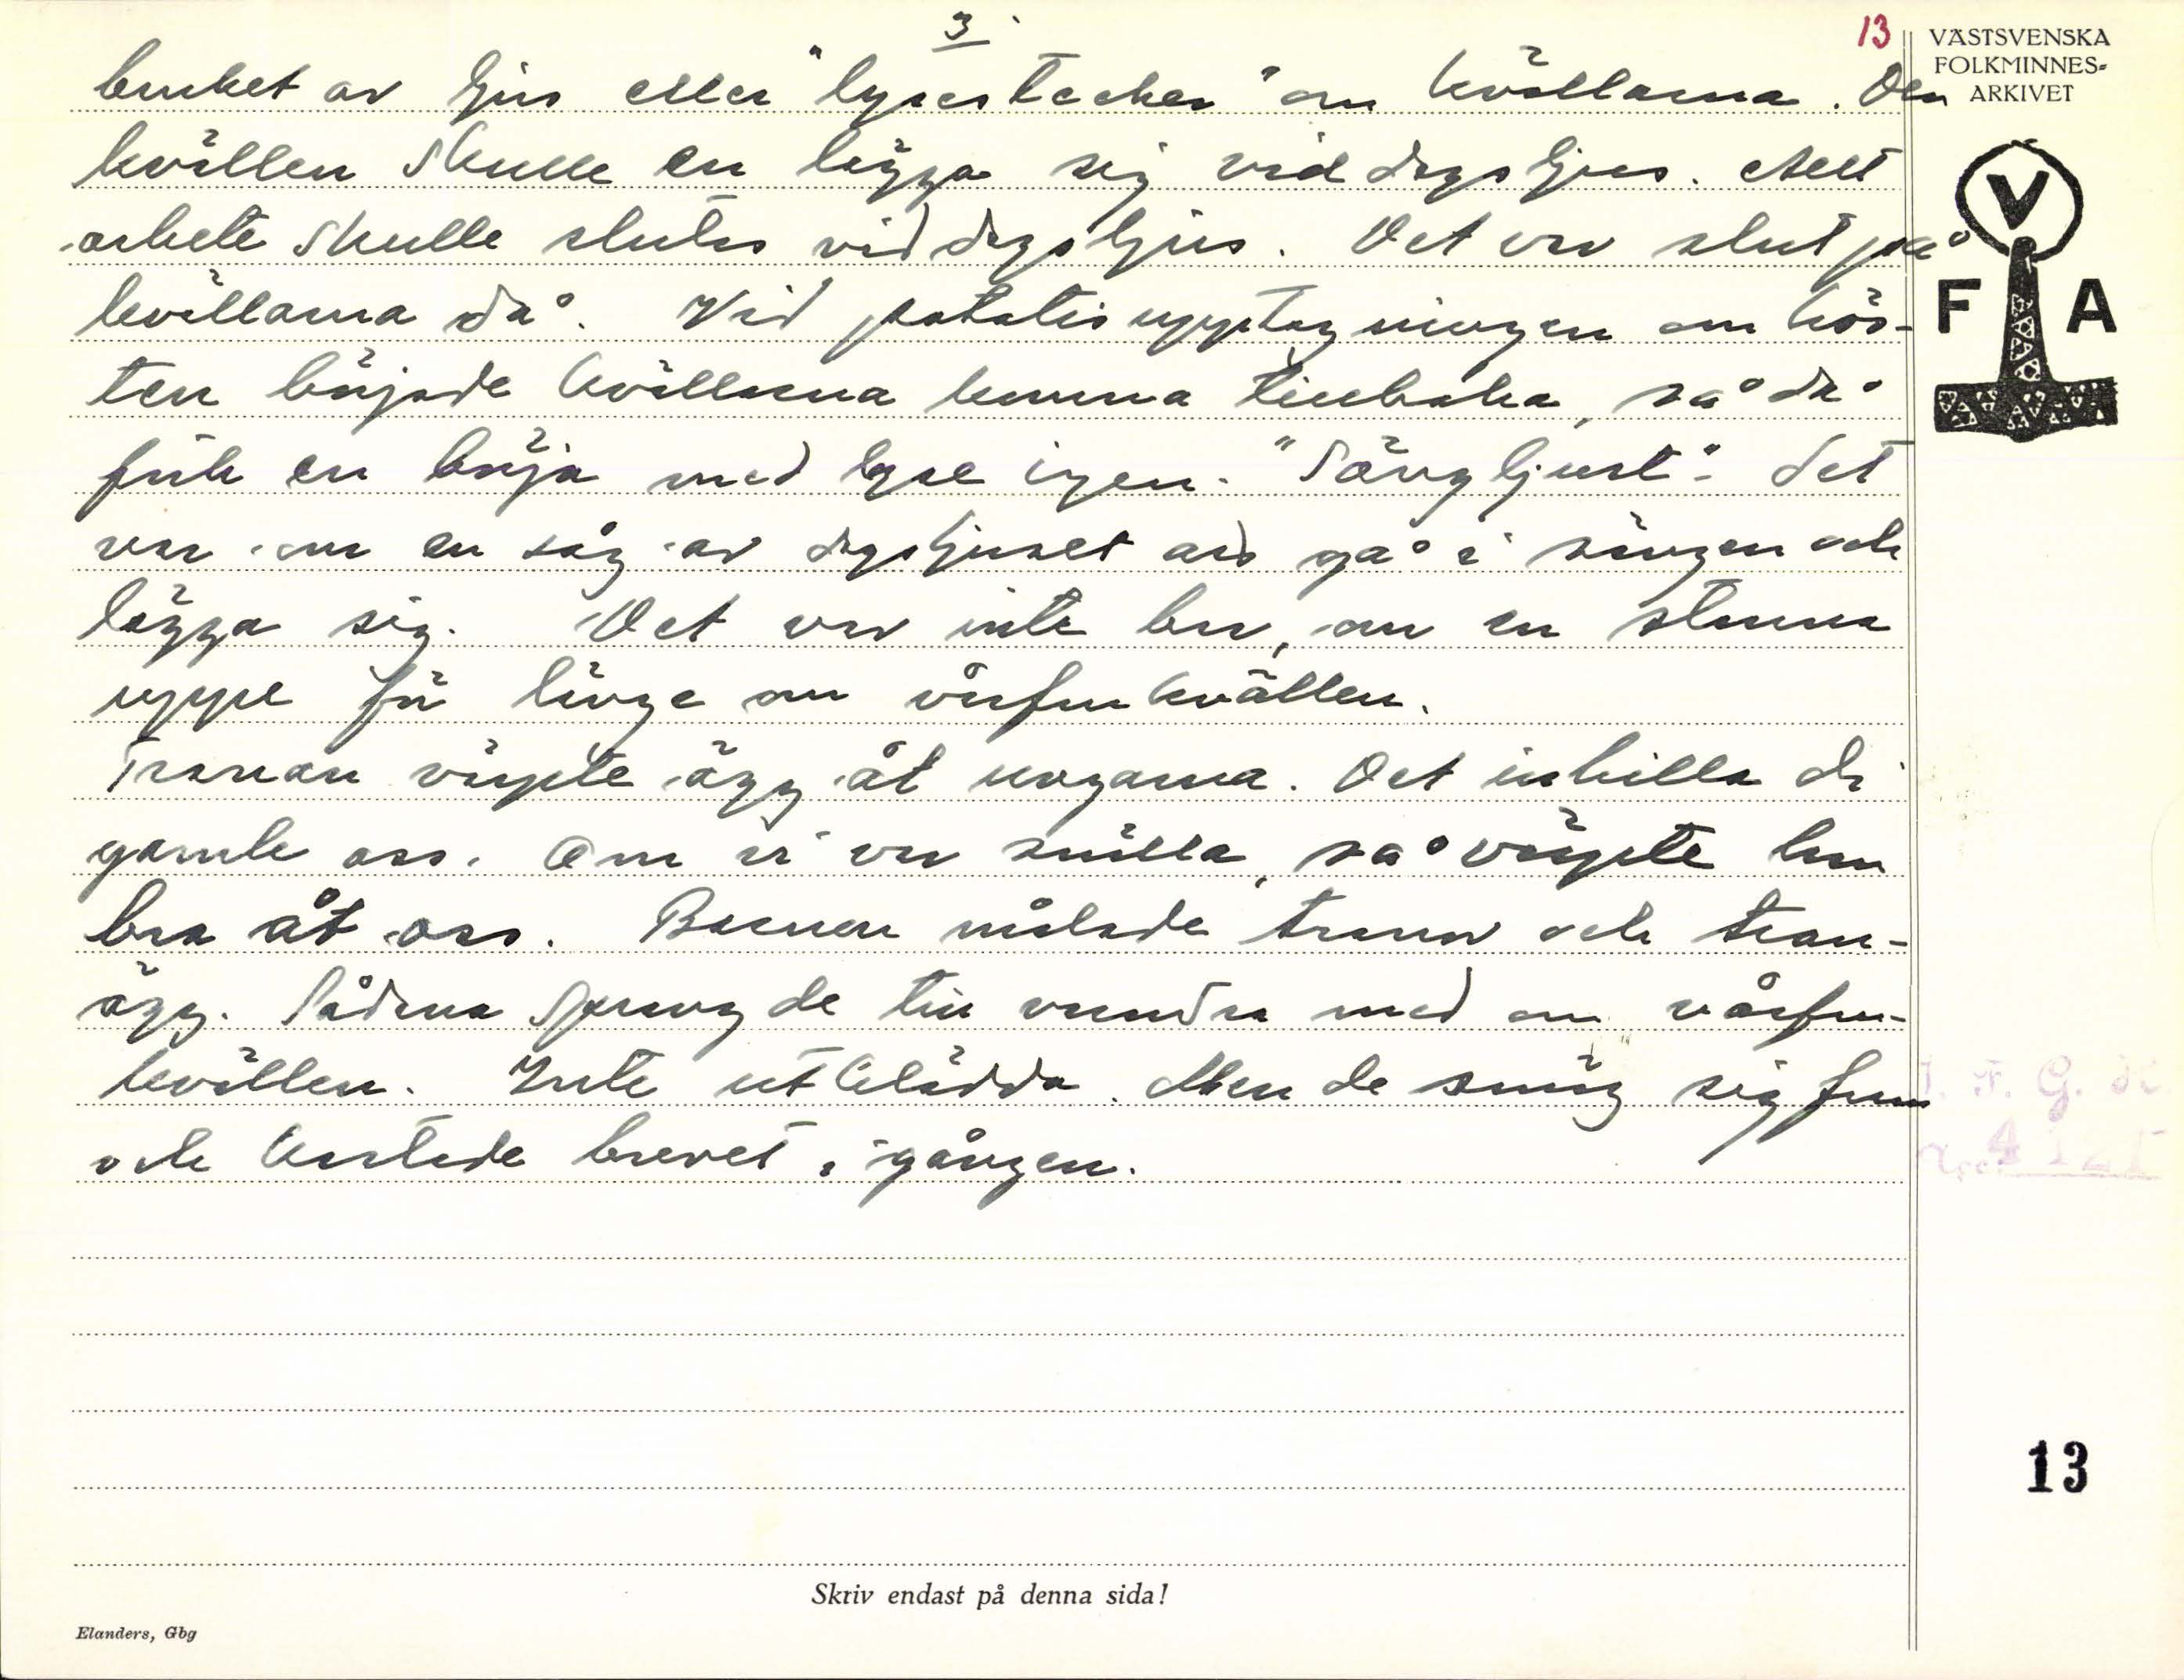 3
13
VÄSTSVENSKA
FOLKMINNES-
ARKIVET
bruket av ljus eller "lysestecker" om kvällarna. Den
kvällen skulle en lägga sig vid dagsljus. Allt
arbete skulle slutas vid dagsljus. Det var slut på
kvällarna då. Vid potatisupptagningen om hös-
ten började kvällarna komma tillbaka, så då
fick en börja med lyse igen. "Sängljust" - det
var om en såg av dagsljuset att gå i sängen och
lägga sig. Det var inte bra, om en stanna
uppe för länge om vårfrukvällen.
Tranan värpte ägg åt ungarna. Det inbilla di
gamle oss. Om vi var snälla, så värpte hon
bra åt oss. Barnen målade tranor och tran-
ägg. Sådana sprang de till varandra med om vårfru-
kvällen. Inte utklädda. Men de smög sig fram
och kastade brevet i gången.
V
F A
13
Skriv endast på denna sida!
Elanders, Gbg